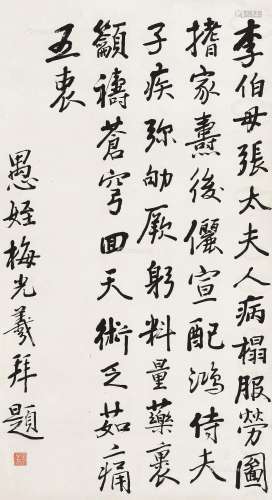 李伯母張太夫人病榻服勞圖
搘家耋後儷宣配鴻侍夫
子疾弥劬厥躬料量藥裹
籲禱蒼穹回天術乏茹痛
五衷
愚姪梅光羲拜題